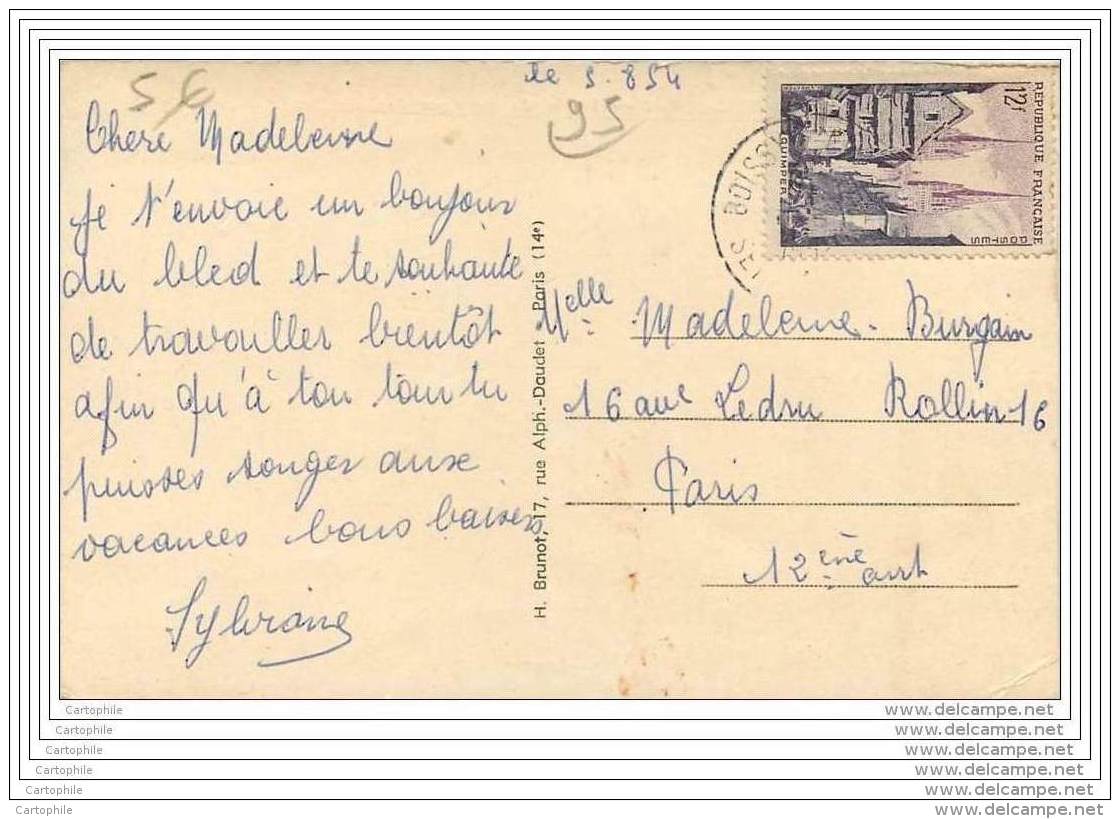 56
le 5.8 54
95
Chere Madeleine
je t'envoie un bonjour
du bled et te souhaite
de travailler bientôt
afin qu'à ton tour tu
puisses songer aux
vacances bons baisers
Sylviane
H. Brunot, 17, rue Alph.-Daudet Paris (14e)
12f
REPUBLIQUE FRANÇAISE
POSTES
QUIMPER
LES BOISS
Melle Madeleine Burgain
16 ave Ledru Rollin 16
Paris
12 ème arrt
Cartophile www.delcampe.net
Cartophile www.delcampe.net
Cartophile www.delcampe.net
Cartophile www.delcampe.net
Cartophile www.delcampe.net
Cartophile www.delcampe.net